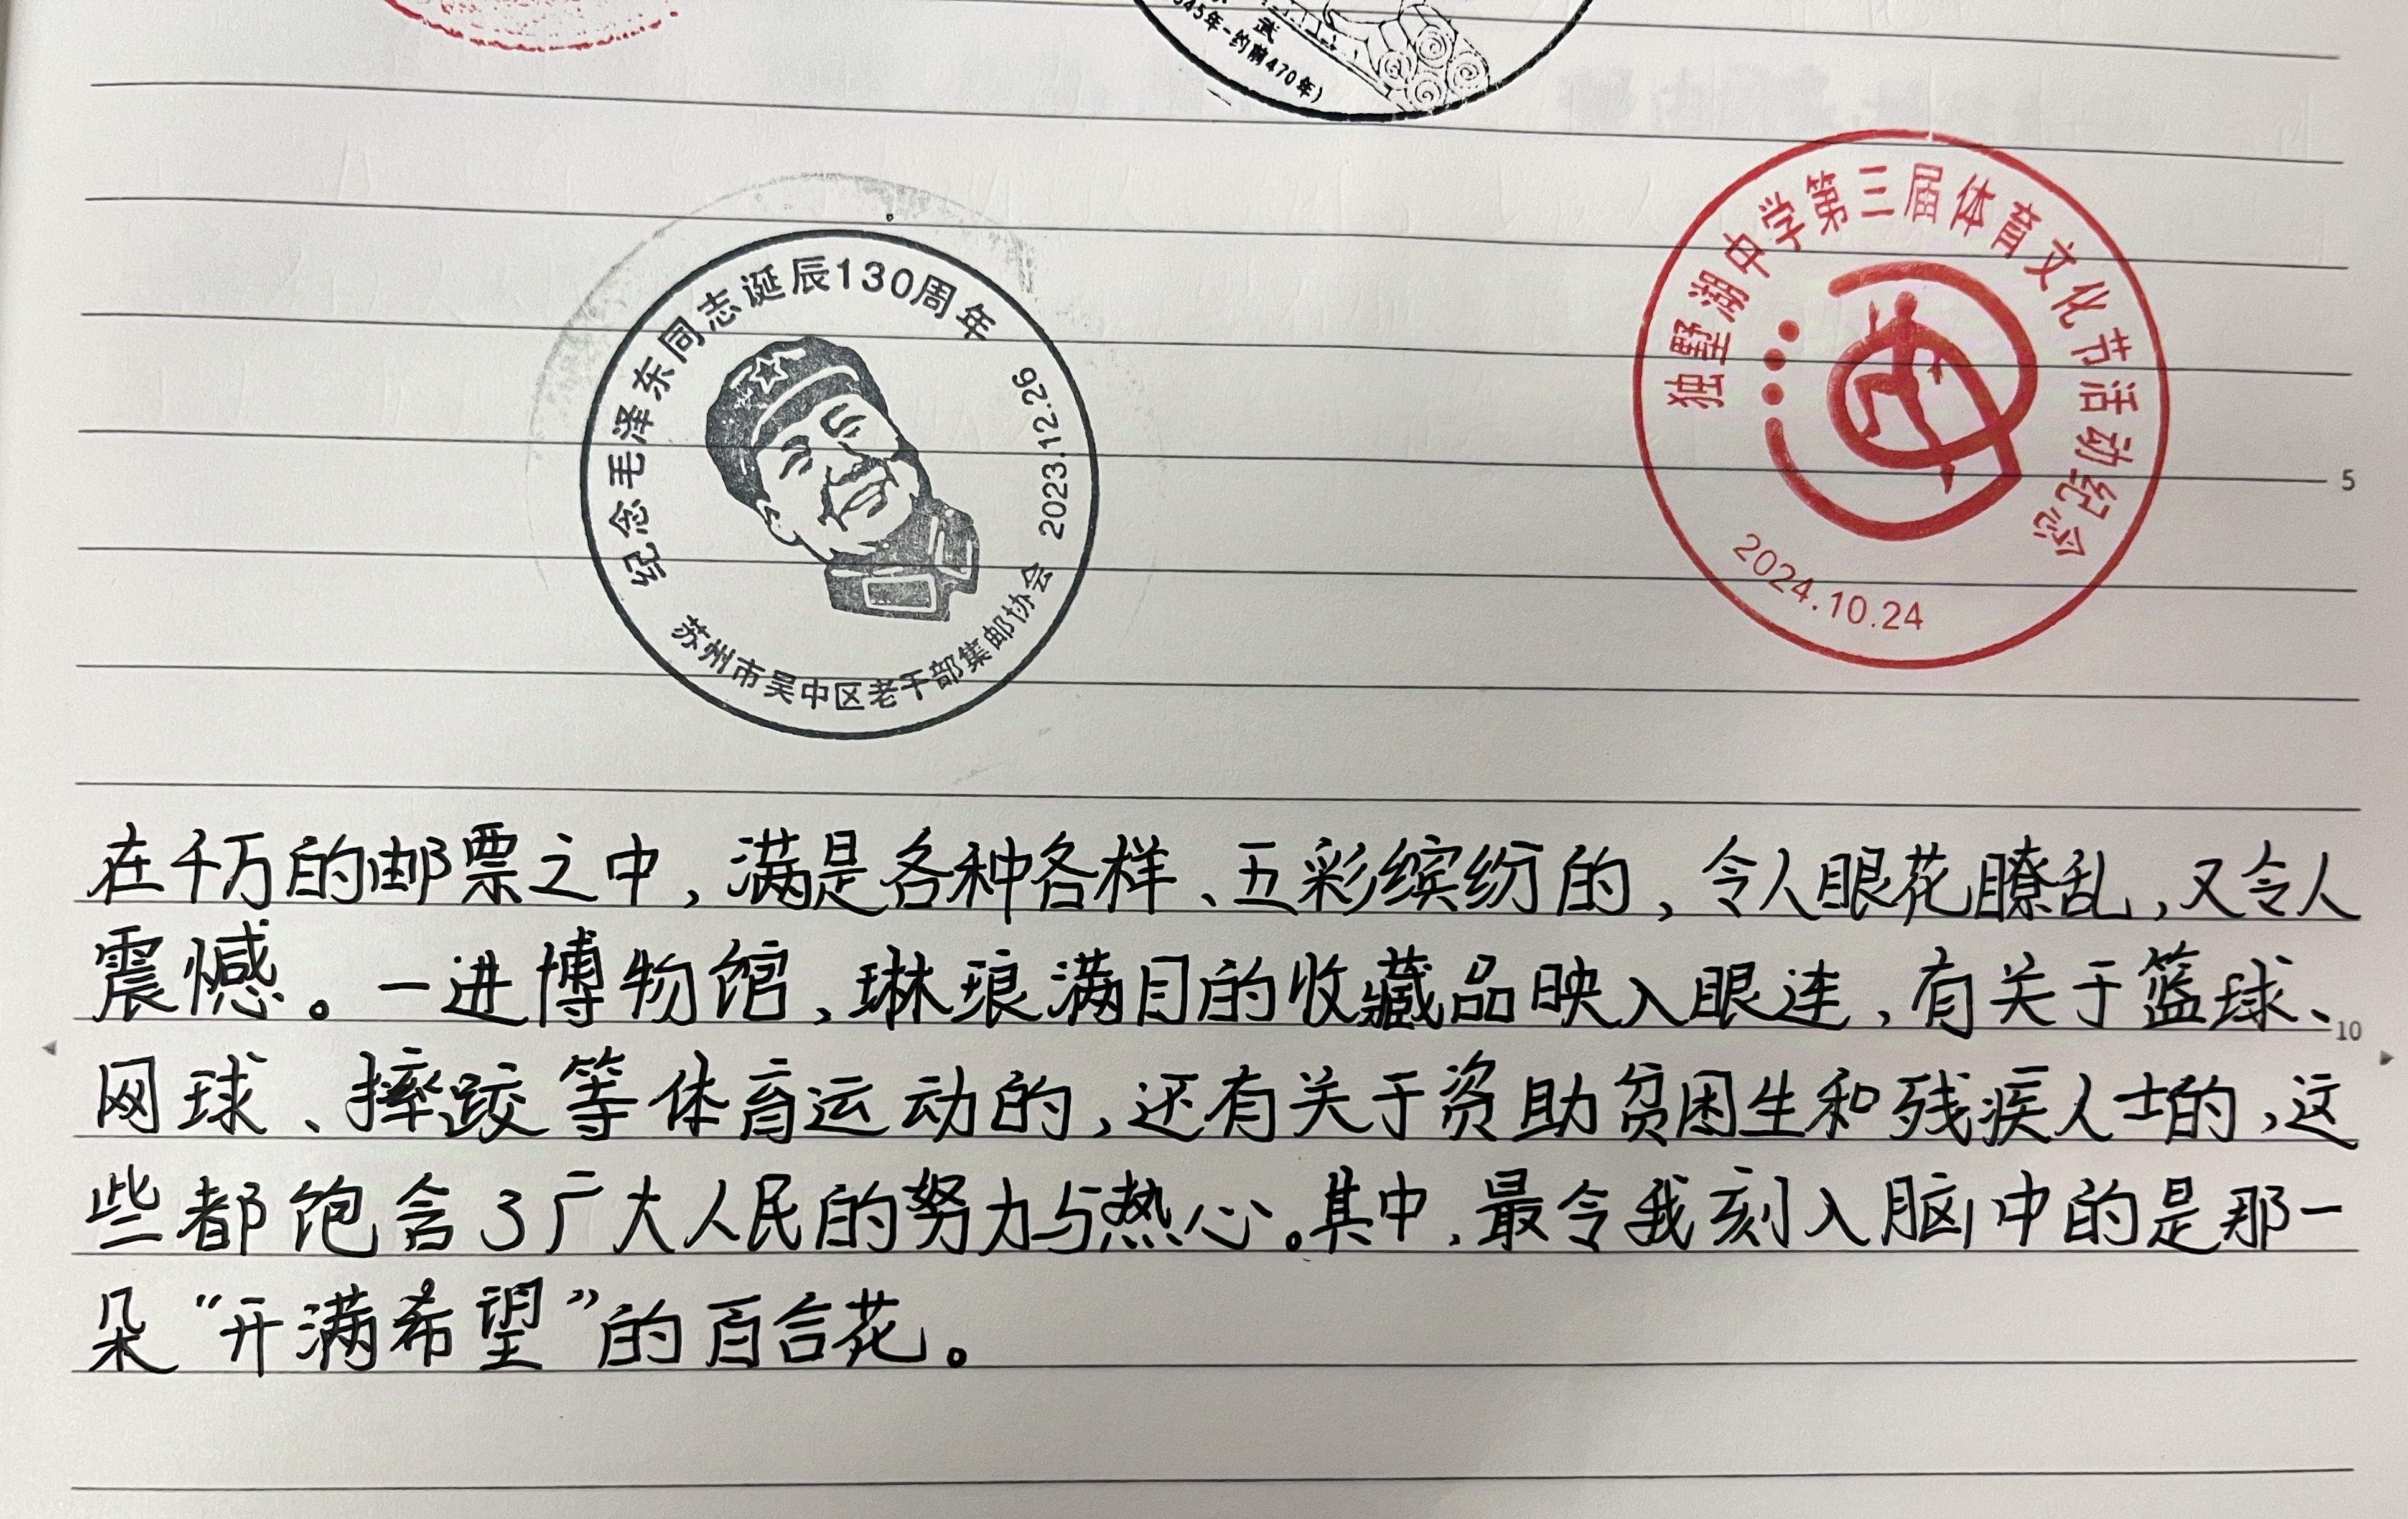 武
545年-约前470年)
纪念毛泽东同志诞辰130周年
2023.12.26
苏州市吴中区老干部集邮协会
独墅湖中学第三届体育文化节活动纪念
2024.10.24
5
在千万的邮票之中,满是各种各样、五彩缤纷的,令人眼花瞭乱,又令人
震憾。一进博物馆,琳琅满目的收藏品映入眼连,有关于篮球、
10
网球、摔跤等体育运动的,还有关于资助贫困生和残疾人士的,这
些都饱含了广大人民的努力与热心。其中,最令我刻入脑中的是那一
朵“开满希望”的百合花。